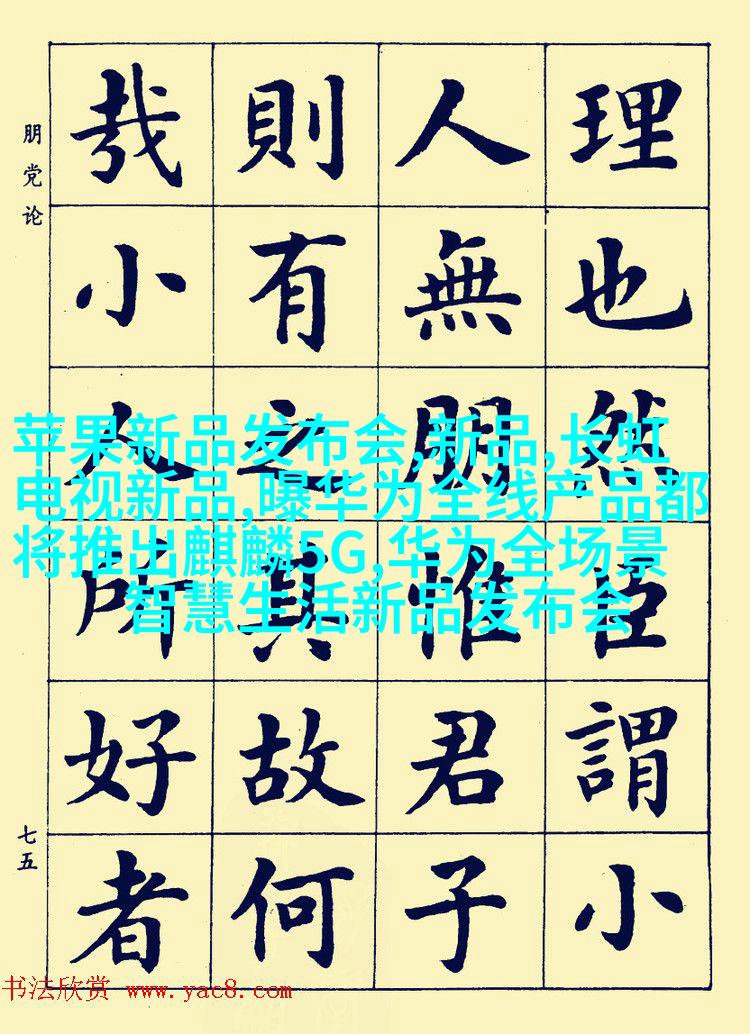 理也然臣謂小
人無朋惟君子
則有之其故何
哉小人所好者
朋党论
七五
苹果新品发布会,新品,长虹
电视新品,曝华为全线产品都
将推出麒麟5G,华为全场景
智慧生活新品发布会
书法欣赏 www.yac8.com